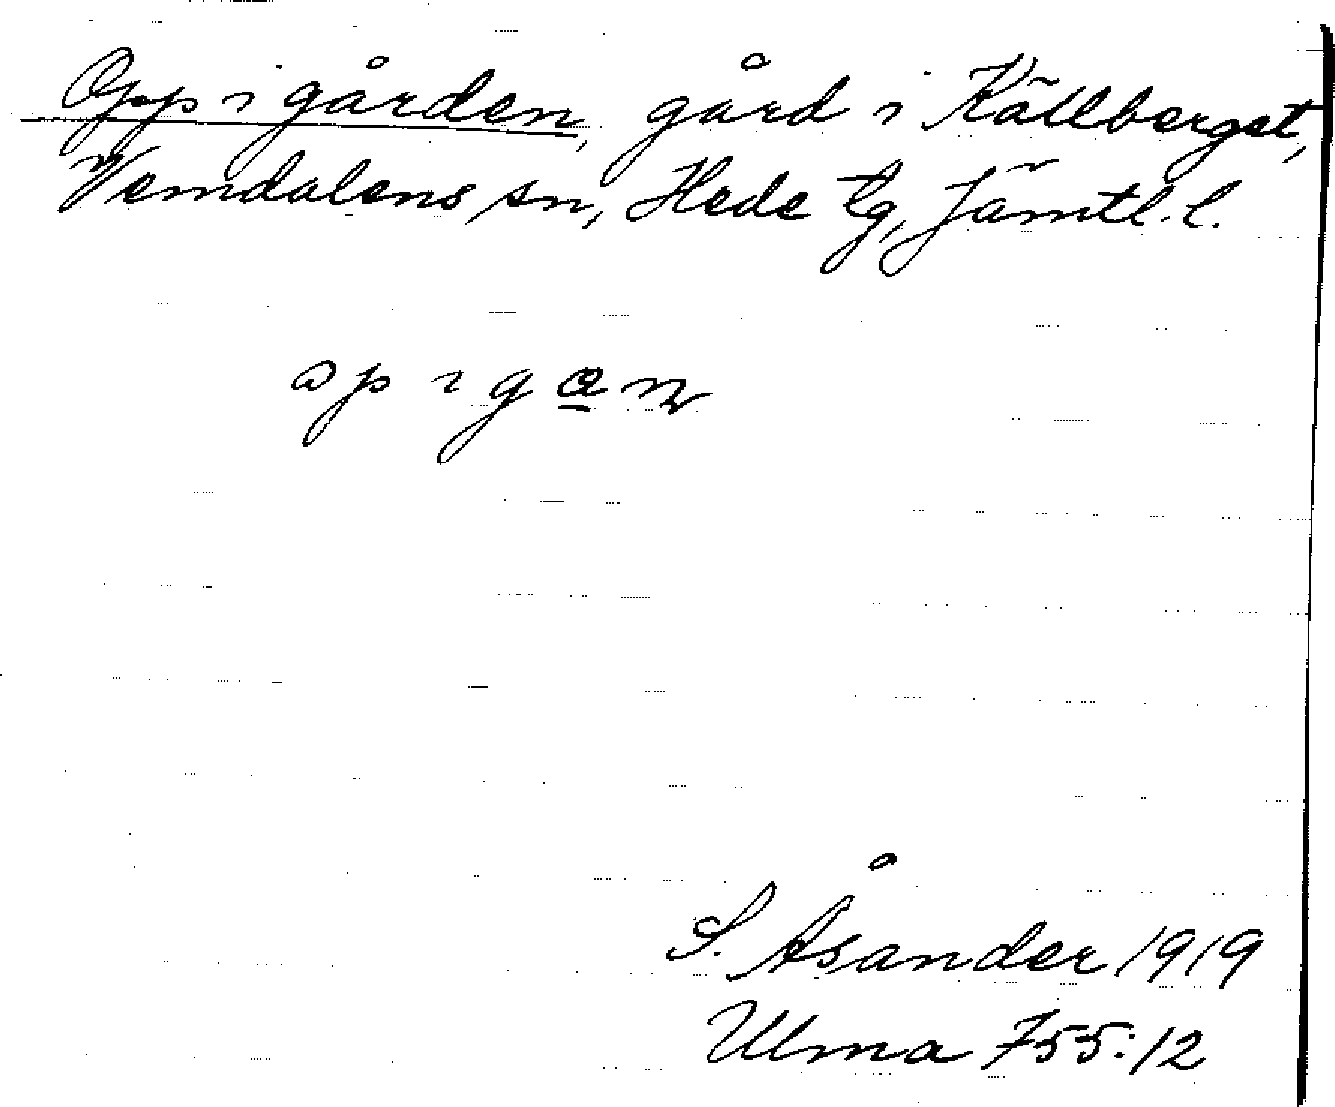 Opp i gården, gård i Källberget,
Vemdalens sn, Hede tg, Jämtl. l.
S. Åsander 1919
Ulma 755:12